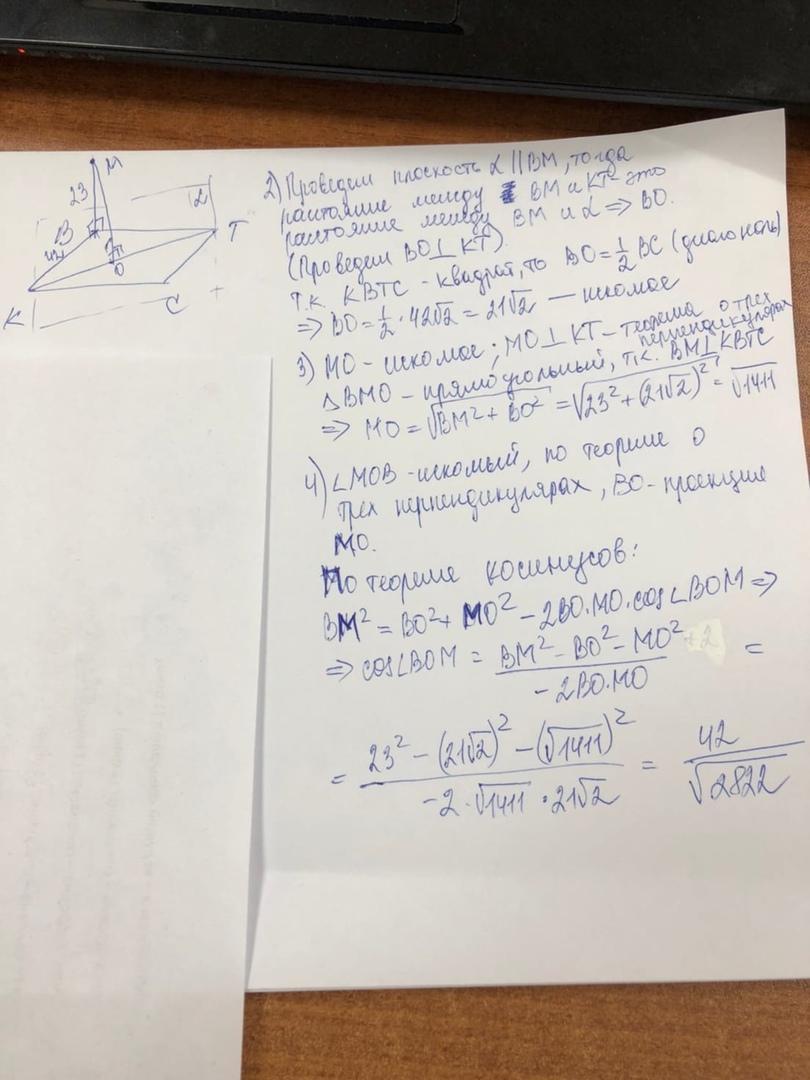 M
23
B
42
O
K
C
T
α
2) Проведем плоскость α || BM, тогда
расстояние между BM и KT - это
расстояние между BM и α ⇒ BO.
(Проведем BO ⊥ KT).
т.к. KBTC - квадрат, то BO = 1/2 BC (диагональ)
⇒ BO = 1/2 · 42√2 = 21√2 — искомое
3) MO - искомое; MO ⊥ KT - теорема о трех
перпендикулярах
△BMO - прямоугольный, т.к. BM ⊥ KBTC
⇒ MO = √(BM² + BO²) = √(23² + (21√2)²) = √1411
4) ∠MOB - искомый, по теореме о
трех перпендикулярах, BO - проекция
MO.
По теореме косинусов:
BM² = BO² + MO² - 2BO·MO·cos∠BOM ⇒
⇒ cos∠BOM = (BM² - BO² - MO²)/(-2BO·MO) =
= (23² - (21√2)² - (√1411)²)/(-2·√1411·21√2) = 42/√2822